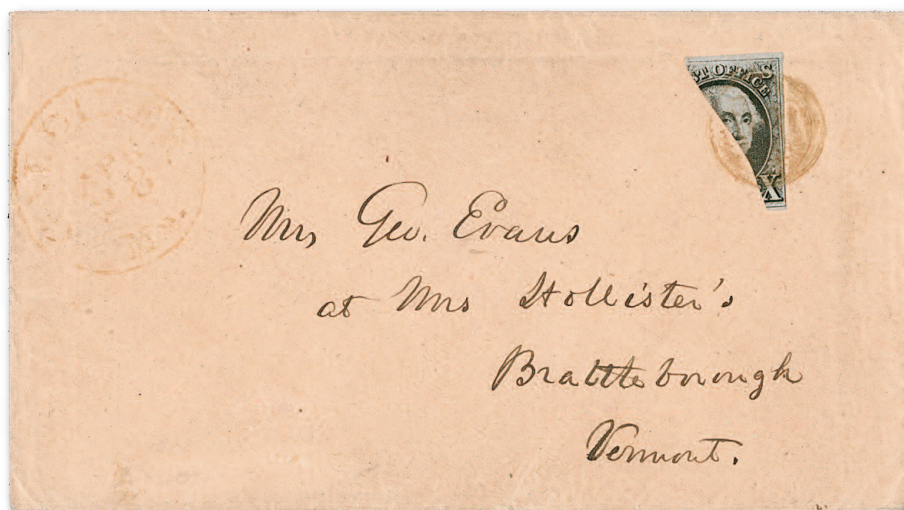 ST OFFICE
S
X
8
Me.
Mrs Geo. Evans
at Mrs Hollister's
Brattleborough
Vermont.